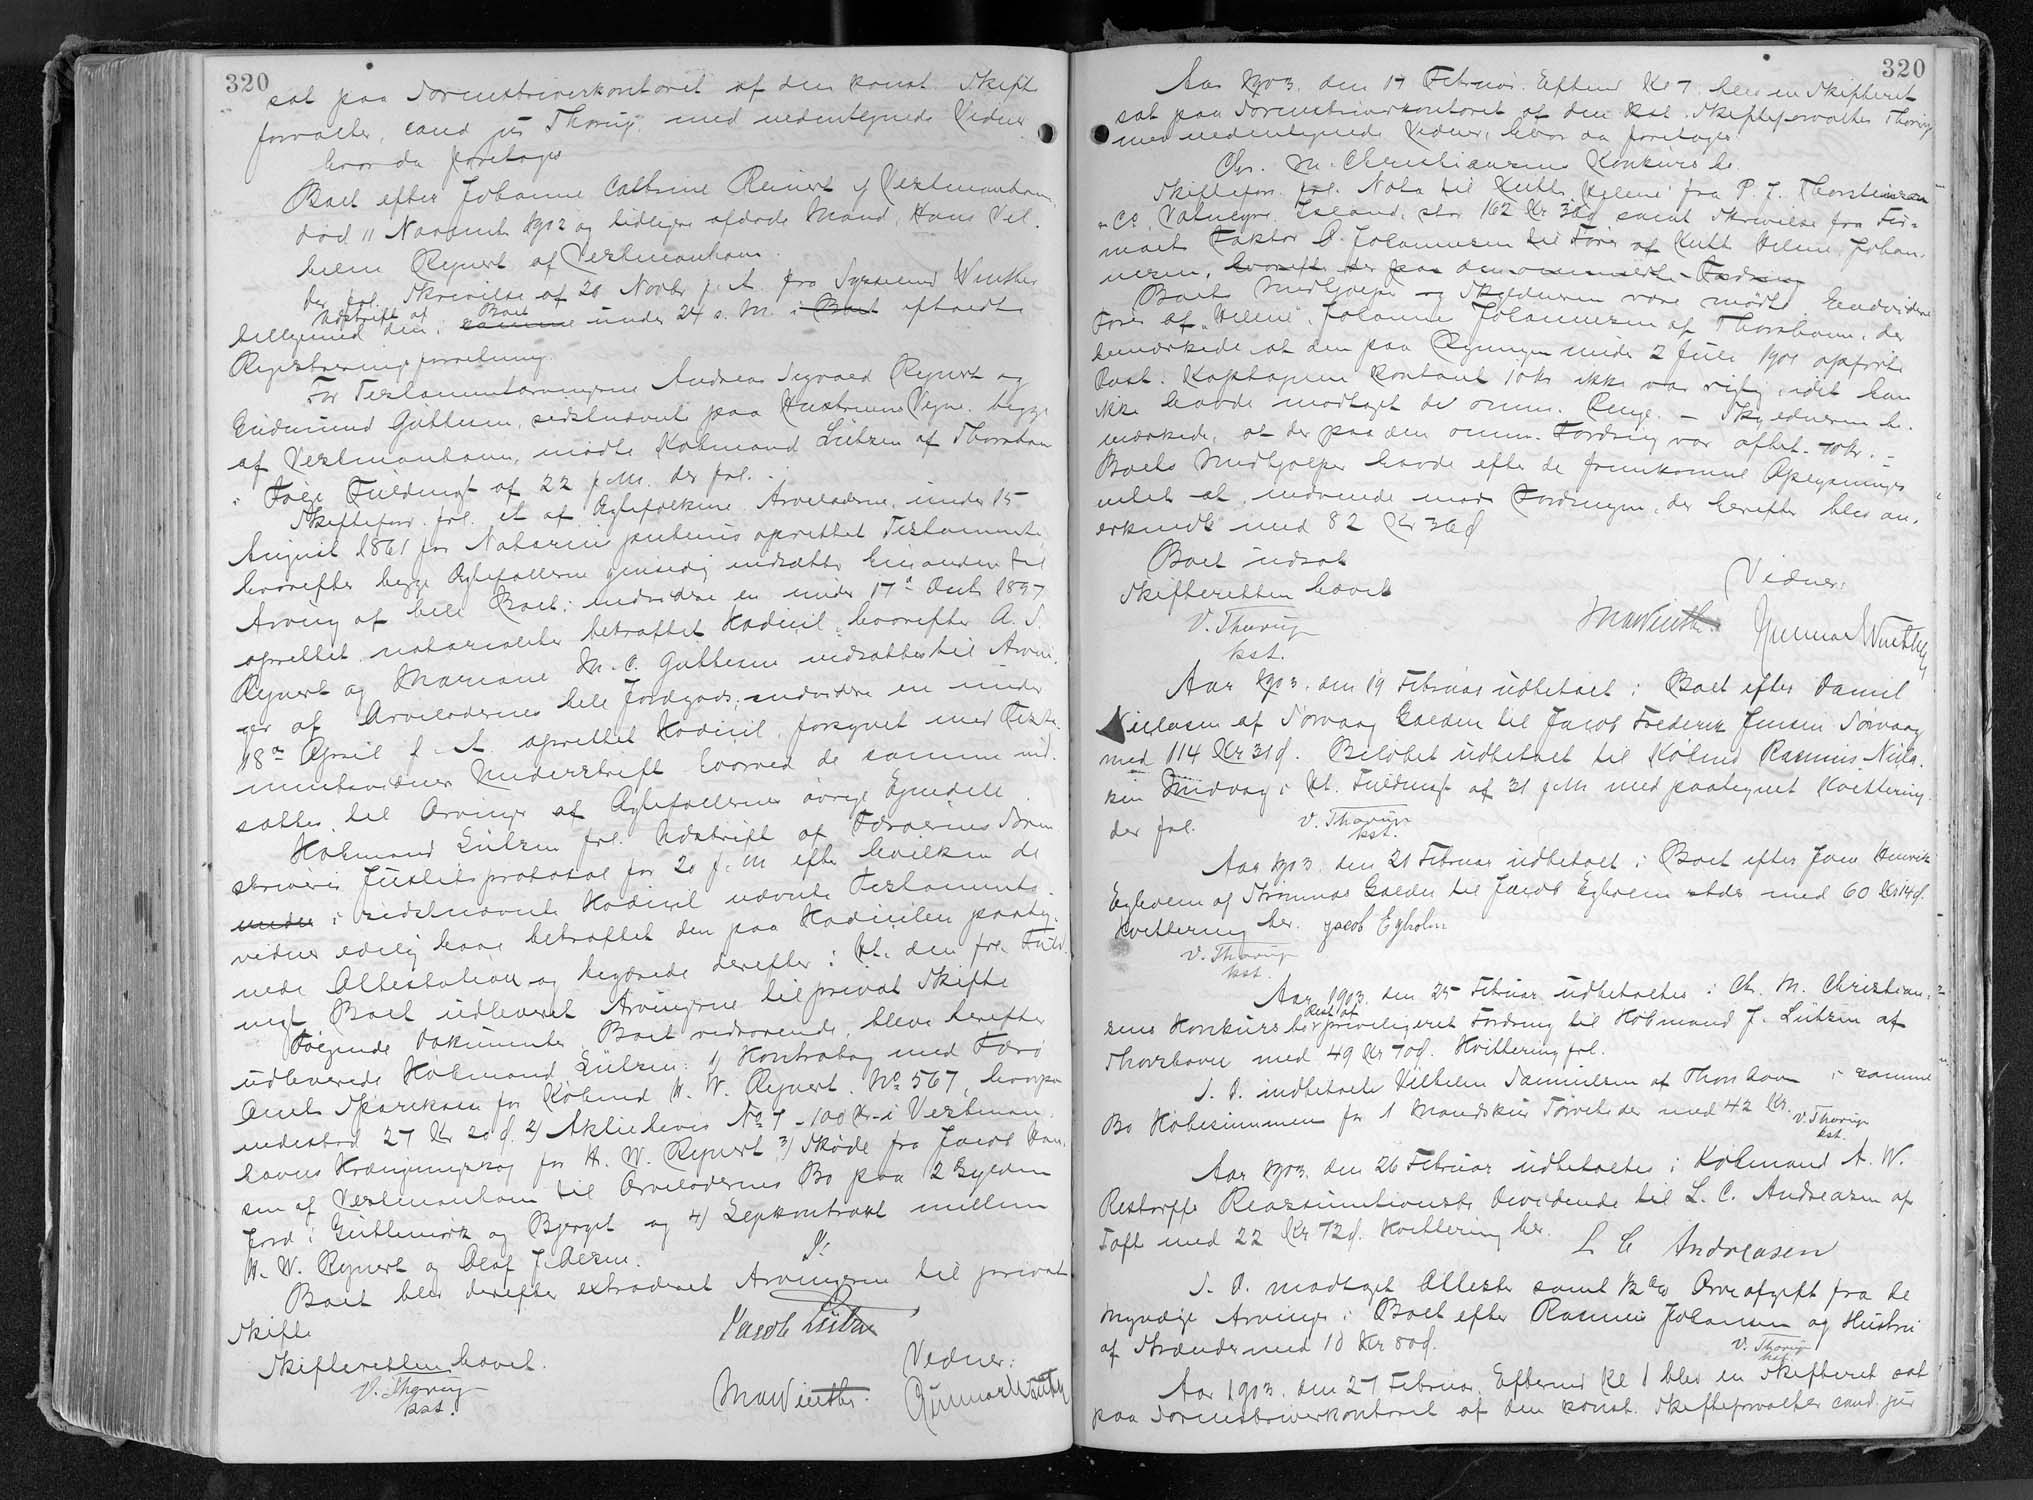 320
sat paa Sorenskriverkontoret af den konst. Skifte
forvalter, cand. jur. Thorup med undertegnede Vidner
hvor da foretoges
Boet efter Johanne Cathrine Reinert af Vestmanhavn,
død 11 Novemb 1902 og tidligere afdøde Mand, Hans Vil-
helm Rejnert af Vestmanhavn.
Der frl. Skrivelse af 20 Novbr f. A. fra Sysselmd Winther
Udskrift af Boet
hellagt med den i samme under 24 s. M. i Boet afholdte
Registreringsforretning.
For Testamentarvingerne Andreas Sigvald Rejnert og
Gudmund Guttesen, sidstnævnte paa Hustrues Vegne, begge
af Vestmanhavn, mødte Købmand Lützen af Thorshavn
i Følge Fuldmgt af 22 f.M. der frl.
Skifteforv. frl. et af Ægtefolkene Arveladerne under 15
August 1861 for Notarius publicus oprettet Testamente
hvorefter begge Ægtefællerne gensidig indsætte hinanden til
Arving af hele Boet; endvidere en under 17de Decb 1897
oprettet notarialiter bekræftet Kodicil, hvorefter A. S.
Rejnert og Mariane M. C. Guttesen indsættes til Arvin-
ger af Arveladernes hele Jordgods, endvidere en under
18de April f. A. oprettet Kodicil, forsynet med Testa-
mentsvidners Underskrift hvorved de samme ind-
sættes til Arvinger af Ægtefællernes øvrige Ejendele.
Købmand Lützen frl. Udskrift af Færøernes Soren
skriveris Justitsprotokol for 20 f. M. efter hvilken de
under i sidstnævnte Kodicil nævnte Testaments-
vidner edelig have bekræftet den paa Kodicilen paateg-
nede Attestation og begærede derefter i Hl. den frl. Fuld-
mgt Boet udleveret Arvingerne til privat Skifte
Følgende Dokumenter Boet vedrørende, bleve herefter
udleverede Købmand Lützen: 1) Kontrabog med Færø
Amts Sparekasse for Købmd H. W. Rejnert No 567, hvorpaa
indestod 27 Kr 20 d. 2) Aktiebevis No 7 - 100 Kr. i Vestman-
havns Krængningsbog for H. W. Rejnert 3) Skøde fra Jacob Han-
sen af Vestmanhavn til Arveladernes Bo paa 2 Gylden
Jord i Guttemørk og Bjerget og 4) Lejekontrakt mellem
H. W. Rejnert og Olaf J. Olsen.
Boet blev derefter extraderet Arvingerne til privat
Skifte
Jacob Lützen
Skifteretten hævet.
V. Thorup
kst.
Vidner:
Ma Winther. Gunnar Winther
320
Aar 1903. den 17 Februar. Efterm Kl 7 blev en Skifteret
sat paa Sorenskriverkontoret af den kst. Skifteforvalter Thorup
med undertegnede Vidner, hvor da foretoges
Chr. M. Christiansens Konkurs bo
Skifteforv. frl. Nota til Kutter Helene fra P. J. Thorsteinson
& Co, Vatneyri, Island, stor 162 Kr 36 d samt Skrivelse fra Fir-
maet Faktor O. Johannesen til Fører af Kutt Helene, Johan-
nesen,
Boets Medhjælper og Skyldneren vare mødte. Endvidere
Fører af "Helene", Johannes Johannesen af Thorshavn, der
bemærkede, at den paa Regningen under 2 Juli 1901 opførte
Post: Kaptajnen Kontant 10 kr ikke var rigtig, idet han
ikke havde modtaget de omm. Penge. - Skyldneren be-
mærkede, at der paa den omm. Fordring var afbet. 70 kr. -
Boets Medhjælper havde efter de fremkomne Oplysninger
intet at indvende mod Fordringen, der herefter blev an-
erkendt med 82 Kr 36 d
Boet udsat
Skifteretten hævet
V. Thorup
kst.
Vidner:
Ma Winther. Gunnar Winther
Aar 1903. den 19 Februar udbetalt i Boet efter Daniel
Niclasen af Sørvaag Gælden til Jacob Frederik Jensen Sørvaag
med 114 Kr 31 d. Beløbet udbetalt til Købmd Rasmus Nicla-
sen Midvaag i Hl. Fuldmgt af 31 f. M med paategnet Kvittering
der frl.
V. Thorup
kst.
Aar 1903. den 21 Februar udbetalt i Boet efter Joen Henrik
Egholm af Strømnæs Gælden til Jacob Egholm stds. med 60 Kr 14 d.
Kvittering her. Jacob Egholm
V. Thorup
kst.
Aar 1903. den 25 Februar udbetaltes i Chr. M. Christian-
Rest af
sens Konkurs bo priviligeret Fordring til Købmand J. Lützen af
Thorshavn med 49 Kr 70 d. Kvittering frl.
S. D. indbetalte Vilhelm Samuelsen af Thorshavn i samme
Bo Købesummen for 1 Mandskur Tørveheder med 42 Kr.
V. Thorup
kst.
Aar 1903. den 26 Februar udbetaltes i Købmand A. W.
Restorffs Reassumtionsbo Dividende til L. C. Andreasen af
Toft med 22 Kr 72 d. Kvittering her.
L C Andreasen
S. D. modtaget Attester samt ½ % Arveafgift fra de
myndige Arvinger i Boet efter Rasmus Johansen og Hustru
af Strænder med 10 Kr 80 d.
V. Thorup
kst.
Aar 1903. den 27 Februar. Efterm Kl 1 blev en Skifteret sat
paa Sorenskriverkontoret af den konst. Skifteforvalter cand. jur